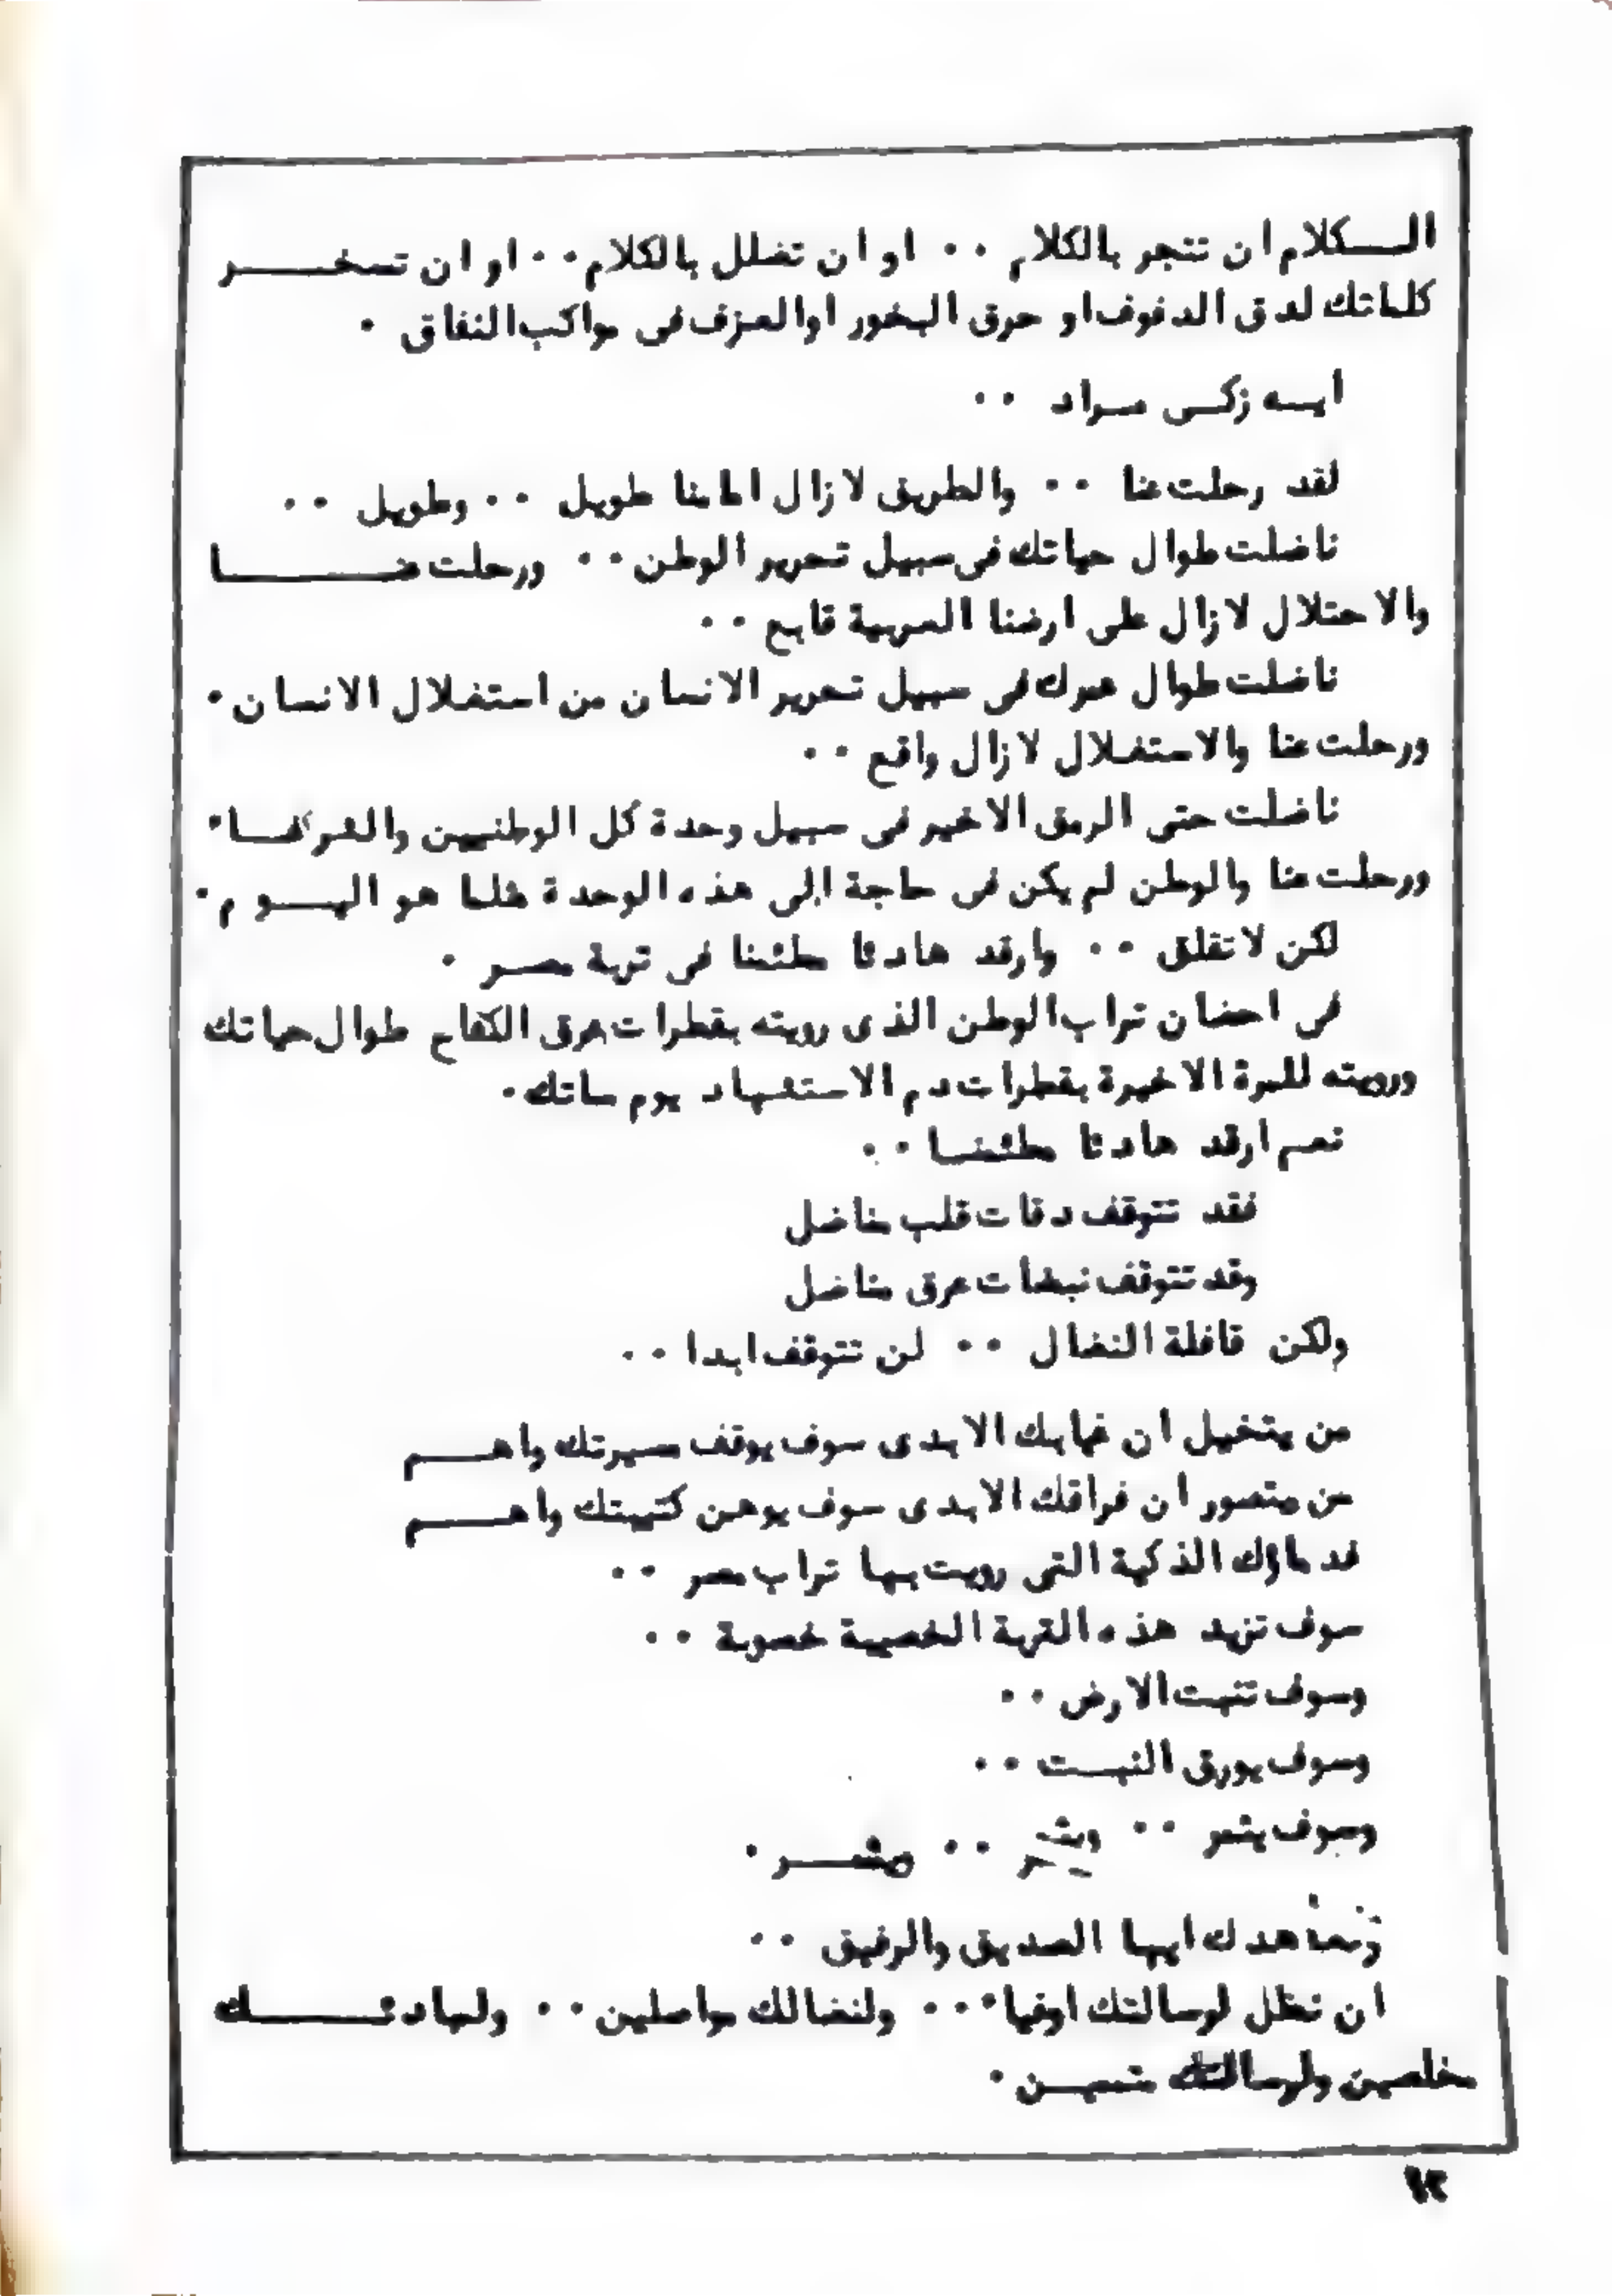 الـكلام ان تتجر بالكلام ٠٠ او ان تضلل بالكلام ٠٠ او ان تسخـــر
كلماتك لدق الدفوف او حرق البخور او العزف فى مواكب النفاق ٠
ايـه زكـى مـراد ٠٠
لقد رحلت عنا ٠٠ والطريق لازال امامنا طويل ٠٠ وطويل ٠٠
ناضلت طوال حياتك فى سبيل تحرير الوطن ٠٠ ورحلت عنـــا
والاحتلال لازال على ارضنا العربية قابع ٠٠
ناضلت طوال عمرك فى سبيل تحرير الانسان من استغلال الانسان ٠
ورحلت عنا والاستغلال لازال واقع ٠٠
ناضلت حتى الرمق الاخير فى سبيل وحدة كل الوطنيين والشركـاء
ورحلت عنا والوطن لم يكن فى حاجة الى هذه الوحدة مثلما هو اليــوم ٠
لكن لاتقلق ٠٠ وارقد هادئا مطئمنا فى تربة مصـر ٠
فى احضان تراب الوطن الذى رويته بقطرات عرق الكفاح طوال حياتك
ورويته للمرة الاخيرة بقطرات دم الاستشهاد يوم مماتك ٠
نعـم ارقد هادئا مطئمنـا ٠٠
فقد تتوقف دقات قلب مناضل
وقد تتوقف نبضات عرق مناضل
ولكن قافلة النضال ٠٠ لن تتوقف ابدا ٠٠
من يتخيل ان غيابك الابدى سوف يوقف مسيرتك واهـــم
من يتصور ان فراقك الابدى سوف يوهن كتيبتك واهـــم
فدماؤك الذكية التى رويت بها تراب مصر ٠٠
سوف تزيد هذه التربة الخصيبة خصوبة ٠٠
وسوف تنبت الارض ٠٠
وسوف يورق النبـت ٠٠
وسوف يثمر ٠٠ ويثمـر ٠٠ ويثمـــر ٠
ونعاهدك ايها الصديق والرفيق ٠٠
ان نظل لرسالتك اوفياء ٠٠ ولنضالك مواصلين ٠٠ ولمبادئـــك
مخلصين ولرسالتك متممـين ٠
١٢